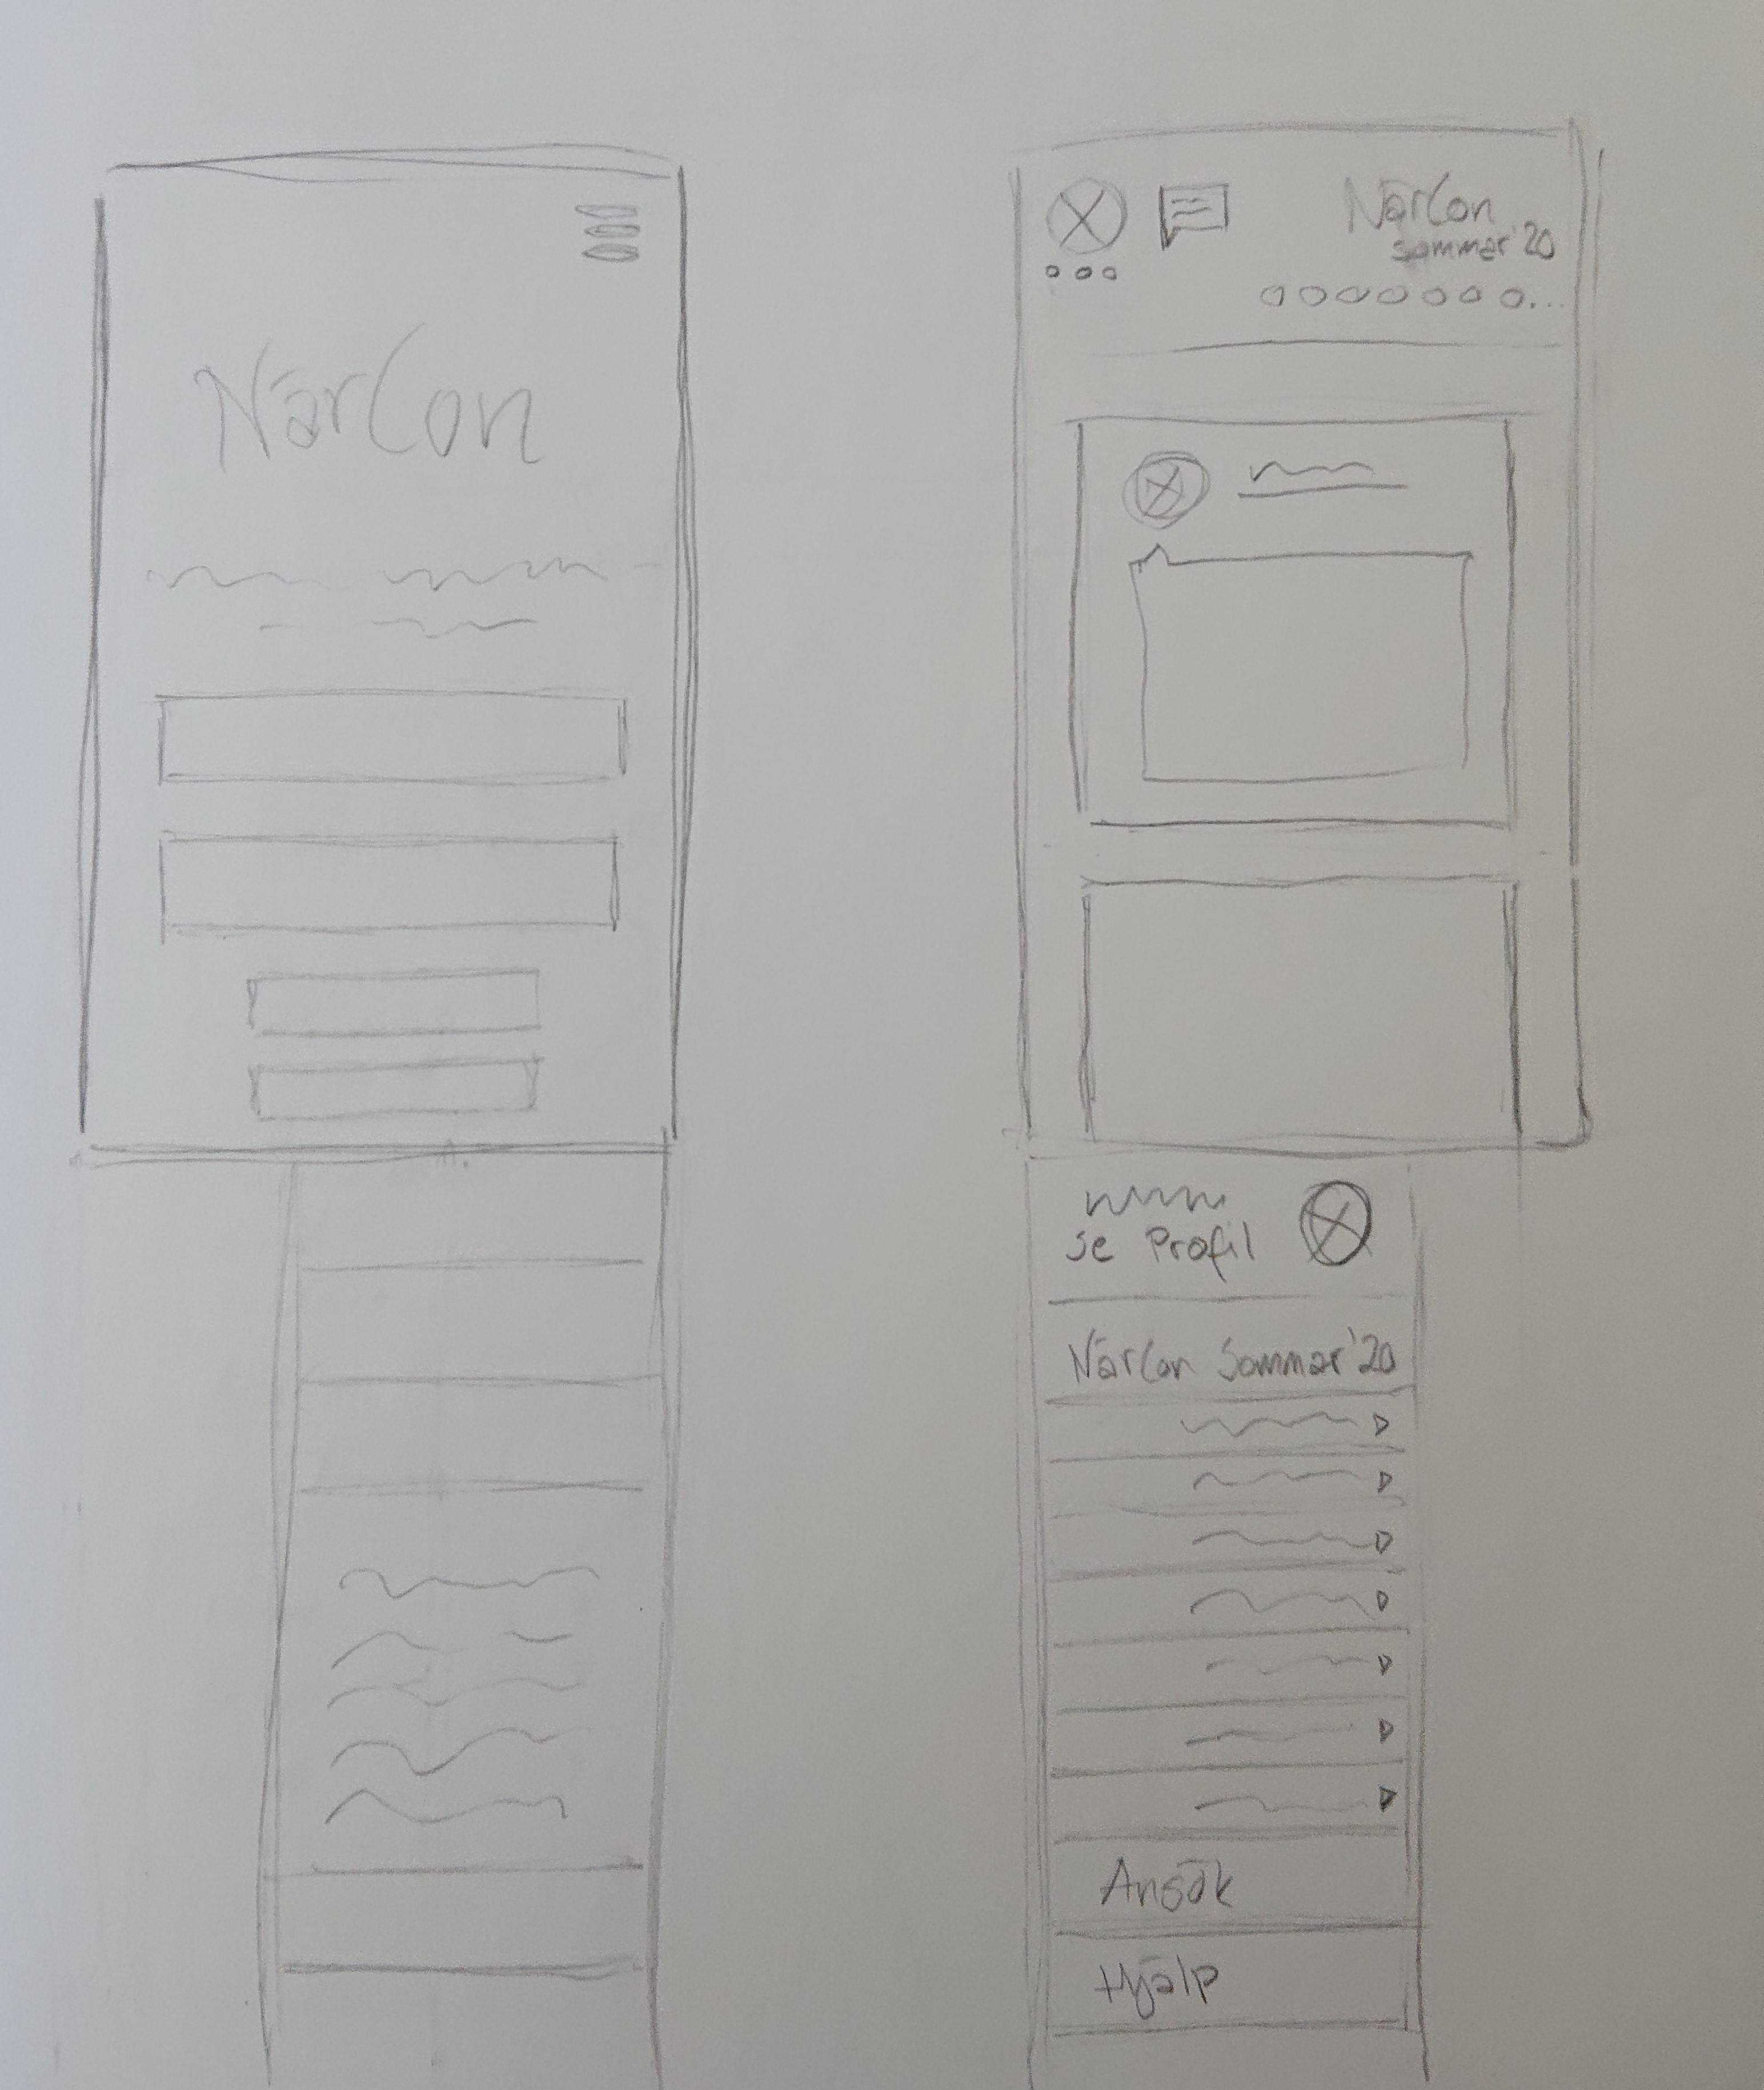 NärCon
NärCon
sommar '20
se Profil
NärCon Sommar '20
Ansök
Hjälp